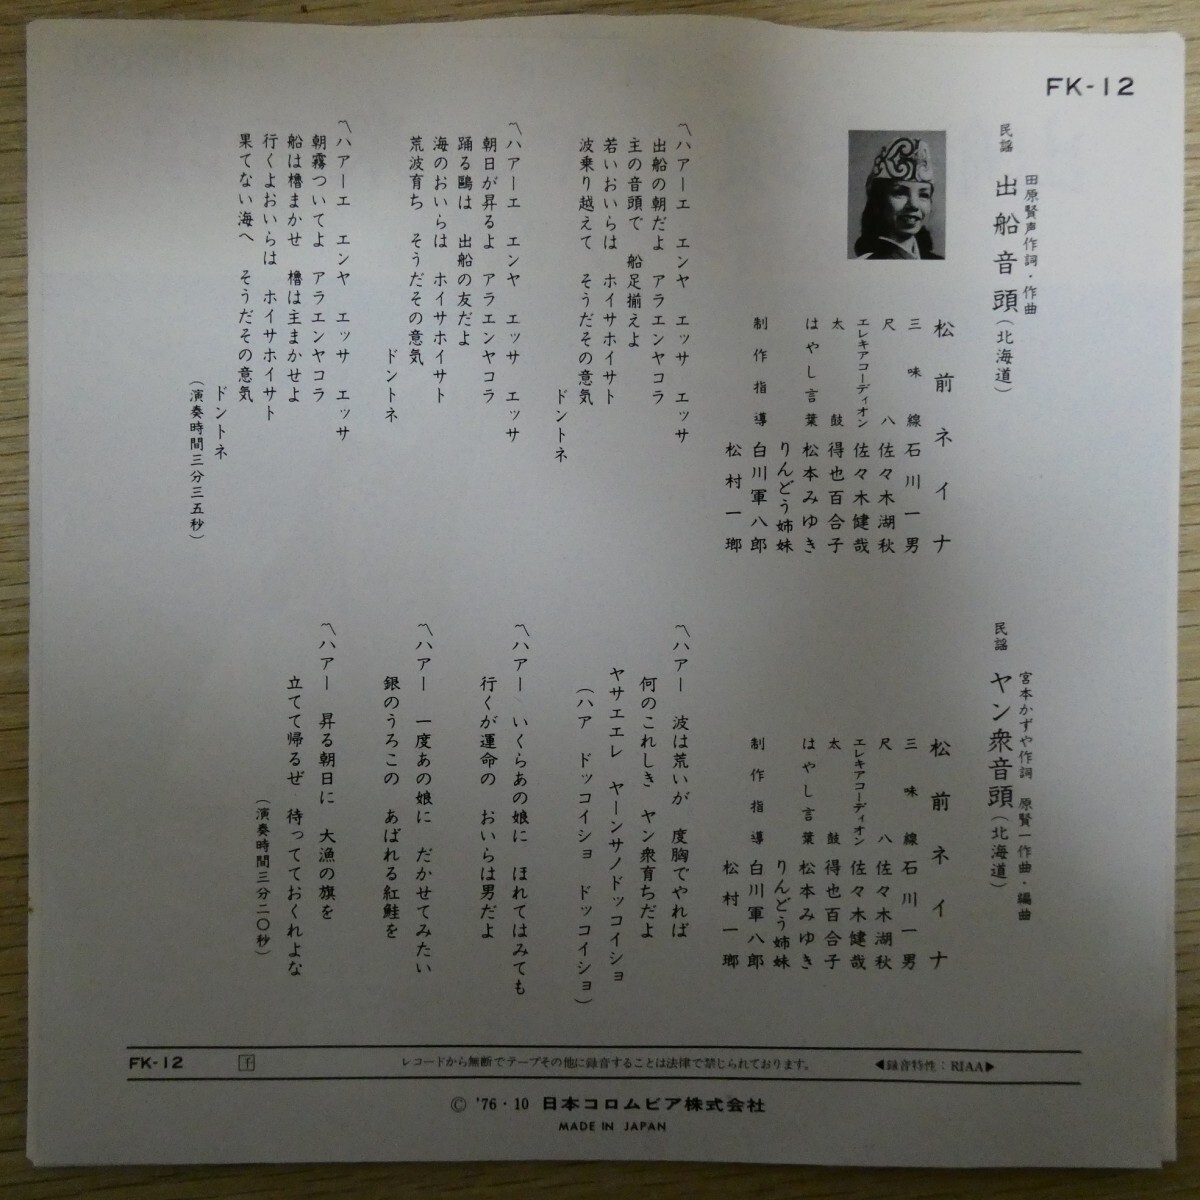 FK-12
民謡 出船音頭(北海道)
田原賢声作詞・作曲
松前ネイナ
三味線 石川一男
尺八 佐々木湖秋
エレキアコーディオン 佐々木健哉
太鼓 得也百合子
はやし言葉 松本みゆき
りんどう姉妹
制作指導 白川軍八郎
松村一郷
〽ハアーエ エンヤ エッサ エッサ
出船の朝だよ アラエンヤコラ
主の音頭で 船足揃えよ
若いおいらは ホイサホイサト
波乗り越えて そうだその意気
ドントネ
〽ハアーエ エンヤ エッサ エッサ
朝日が昇るよ アラエンヤコラ
踊る鷗は 出船の友だよ
海のおいらは ホイサホイサト
荒波育ち そうだその意気
ドントネ
〽ハアーエ エンヤ エッサ エッサ
朝霧ついてよ アラエンヤコラ
船は櫓まかせ 櫓は主まかせよ
行くよおいらは ホイサホイサト
果てない海へ そうだその意気
ドントネ
(演奏時間三分三五秒)
民謡 ヤン衆音頭(北海道)
宮本かずや作詞 原賢一作曲・編曲
松前ネイナ
三味線 石川一男
尺八 佐々木湖秋
エレキアコーディオン 佐々木健哉
太鼓 得也百合子
はやし言葉 松本みゆき
りんどう姉妹
制作指導 白川軍八郎
松村一郷
〽ハアー 波は荒いが 度胸でやれば
何のこれしき ヤン衆育ちだよ
ヤサエエレ ヤーンサノドッコイショ
(ハア ドッコイショ ドッコイショ)
〽ハアー いくらあの娘に ほれてはみても
行くが運命の おいらは男だよ
〽ハアー 一度あの娘に だかせてみたい
銀のうろこの あばれる紅鮭を
〽ハアー 昇る朝日に 大漁の旗を
立てて帰るぜ 待ってておくれよな
(演奏時間三分二〇秒)
FK-12 干 レコードから無断でテープその他に録音することは法律で禁じられております。 ◀録音特性：RIAA▶
© '76・10 日本コロムビア株式会社
MADE IN JAPAN